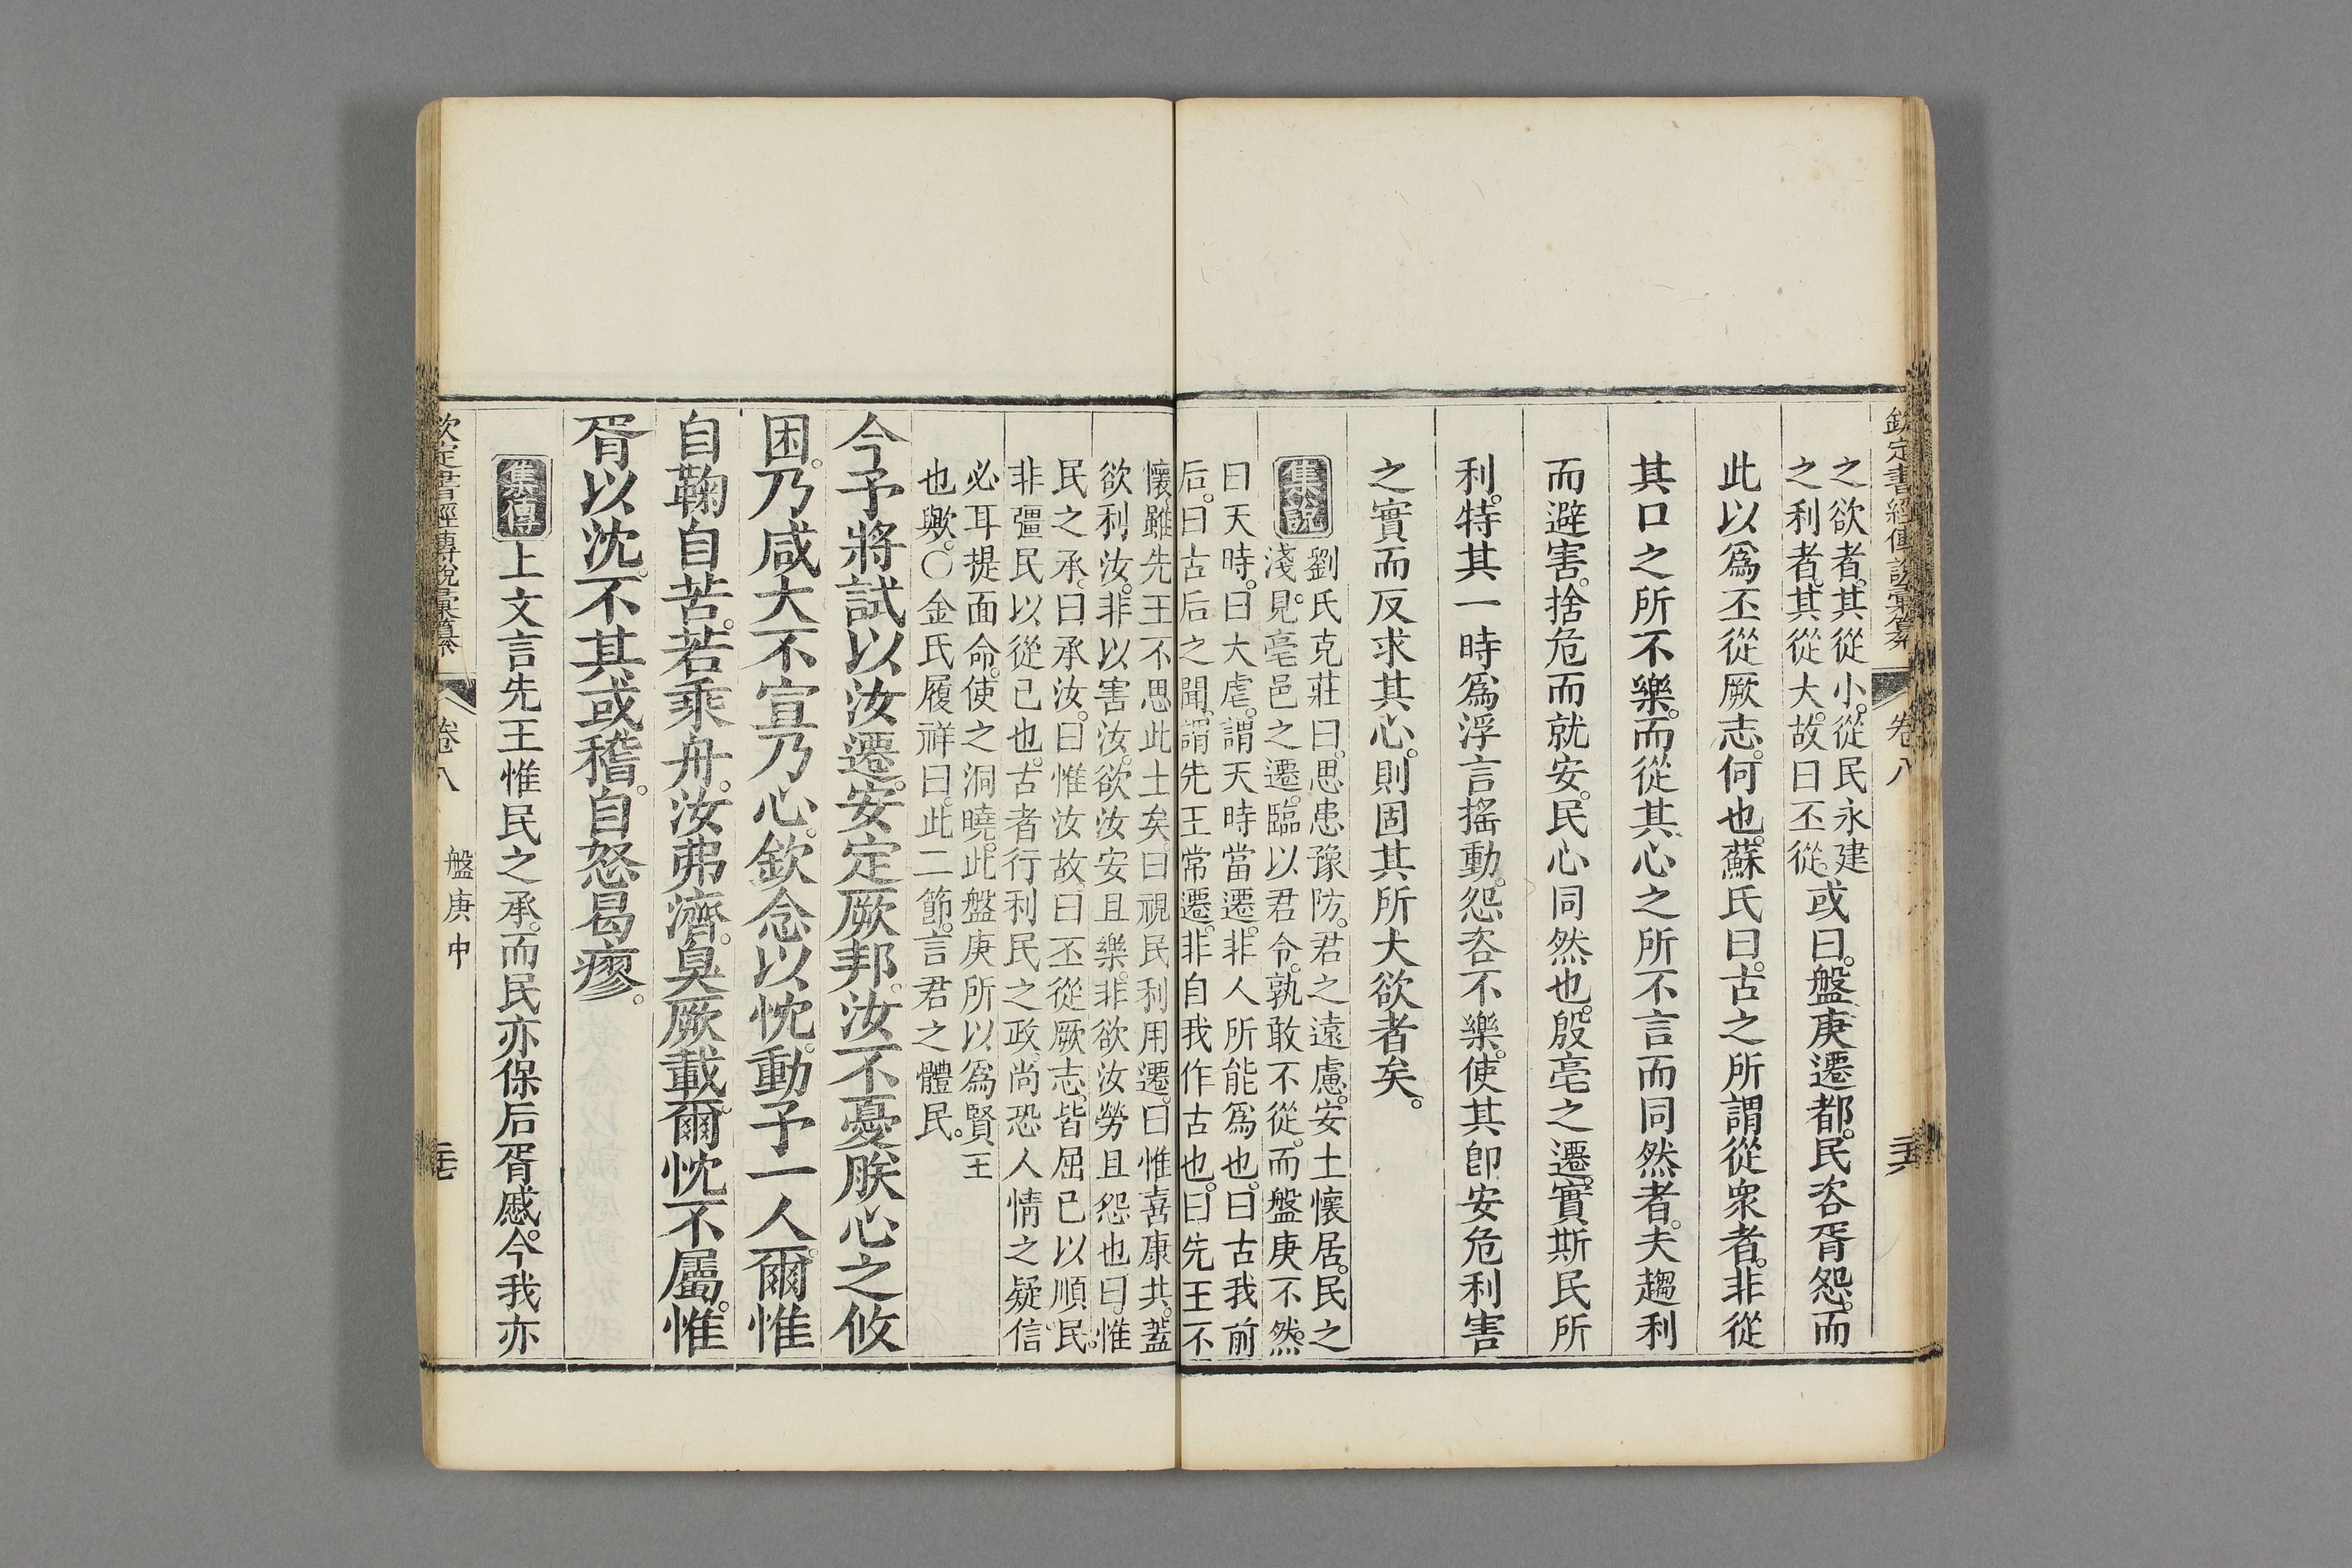 欽定書經傳說彙纂 卷八
之欲者。其從小。從民永建
之利者。其從大。故曰丕從。或曰。盤庚遷都。民咨胥怨。而
此以爲丕從厥志。何也。蘇氏曰。古之所謂從衆者。非從
其口之所不樂。而從其心之所不言而同然者。夫趨利
而避害。捨危而就安。民心同然也。殷亳之遷。實斯民所
利。特其一時爲浮言搖動。怨咨不樂。使其卽安危利害
之實。而反求其心。則固其所大欲者矣。
集說
劉氏克莊曰。思患豫防。君之遠慮。安土懷居。民之
淺見。亳邑之遷。臨以君令。孰敢不從。而盤庚不然。
曰天時。曰大虐。謂天時當遷。非人所能爲也。曰古我前
后。曰古后之聞。謂先王常遷。非自我作古也。曰先王不
懷。雖先王不思此土矣。曰視民利用遷。曰惟喜康共。蓋
欲利汝。非以害汝。欲汝安且樂。非欲汝勞且怨也。曰。惟
民之承。曰承汝。曰惟汝故。曰丕從厥志。皆屈已以順民。
非彊民以從已也。古者行利民之政。尚恐人情之疑信
必耳提面命。使之洞曉。此盤庚所以爲賢王
也歟。〇金氏履祥曰。此二節。言君之體民。
今予將試以汝遷。安定厥邦。汝不憂朕心之攸
困。乃咸大不宣乃心。欽念以忱。動予一人。爾惟
自鞠自苦。若乘舟。汝弗濟。臭厥載。爾忱不屬。惟
胥以沈。不其或稽。自怒曷瘳。
集傳
上文言先王惟民之承。而民亦保后胥慼。今我亦
欽定書經傳說彙纂 卷八 盤庚中